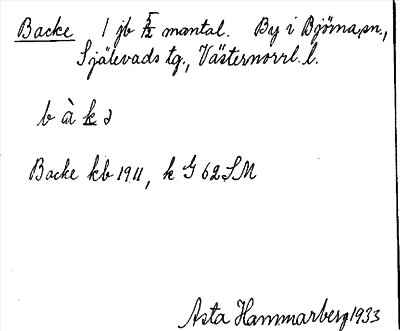 Backe 1 jb mantal. By i Björna sn.,
Själevads tg., Västernorrl. l.
b à k
Backe kb 1911, k G 62 SM
Asta Hammarberg 1933